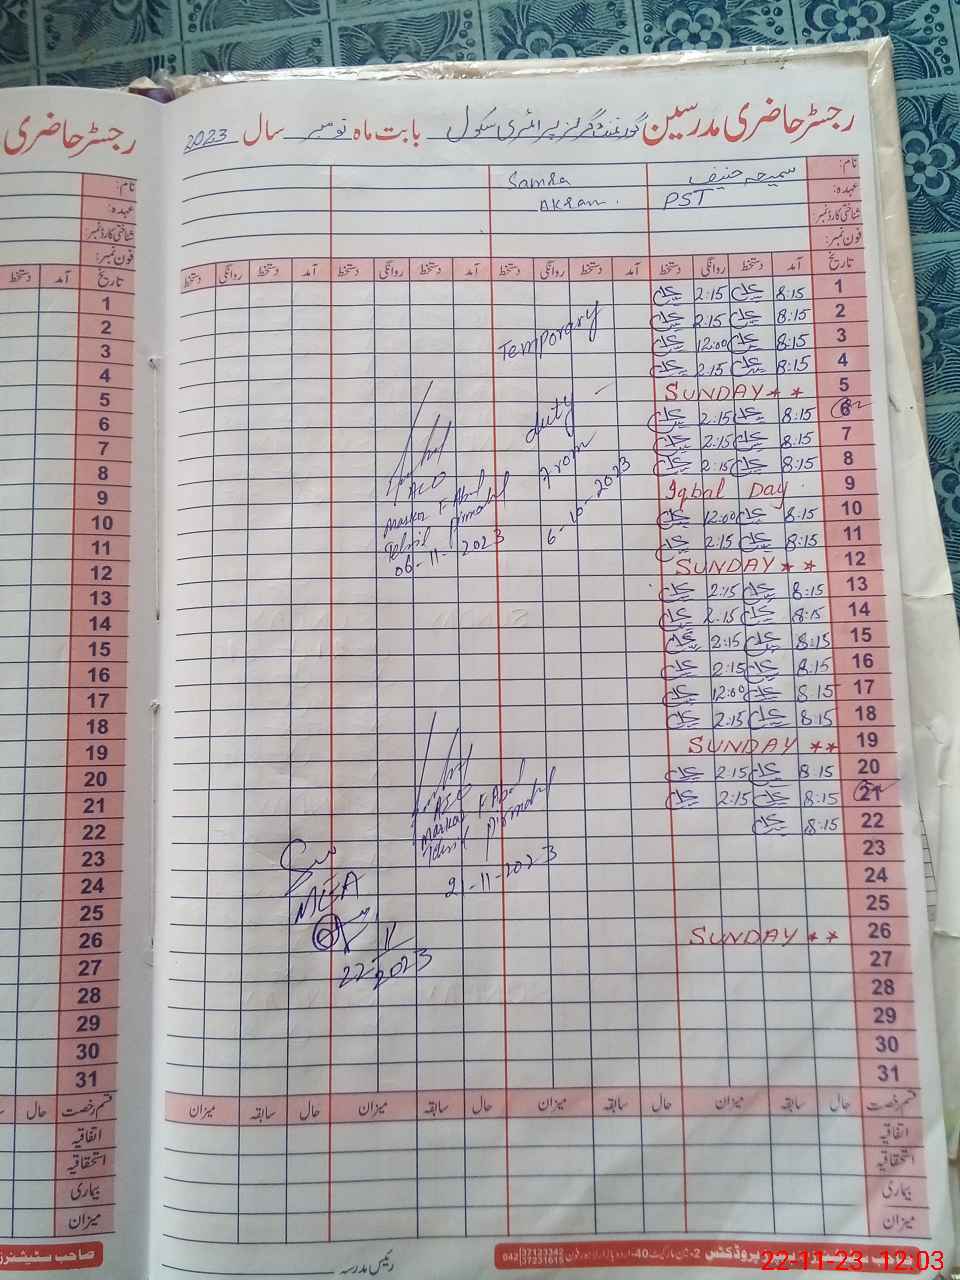 رجسٹر حاضری مدرسین گورنمنٹ گرلز پرائمری سکول بابت ماہ نومبر سال 2023
نام: سمیحہ حنیف Samra
عہدہ: PST Akram.
شناختی کارڈ نمبر:
فون نمبر:
تاریخ آمد دستخط روانگی دستخط آمد دستخط روانگی دستخط آمد دستخط روانگی دستخط
1 8:15 2:15
2 8:15 2:15
3 8:15 12:00
4 8:15 2:15
5 SUNDAY **
6 8:15 2:15
7 8:15 2:15
8 8:15 2:15
9 Iqbal Day
10 8:15 12:00
11 8:15 2:15
12 SUNDAY **
13 8:15 2:15
14 8:15 2:15
15 8:15 2:15
16 8:15 2:15
17 8:15 12:00
18 8:15 2:15
19 SUNDAY **
20 8:15 2:15
21 8:15 2:15
22 8:15
23
24
25
26 SUNDAY **
27
28
29
30
31
Temporary
duty
From
6-10-2023
Markaz F. Abad
Tehsil Pirmahal
06-11-2023
Markaz F. Abad
Tehsil Pirmahal
21-11-2023
MEA
22-11-2023
قسم رخصت حال سابقہ میزان حال سابقہ میزان حال سابقہ میزان حال سابقہ میزان
اتفاقیہ
استحقاقیہ
بیماری
میزان
رئیس مدرسہ
042 37123242
37231615
رجسٹر حاضری
نام:
عہدہ:
شناختی کارڈ نمبر:
فون نمبر:
تاریخ آمد دستخط
1
2
3
4
5
6
7
8
9
10
11
12
13
14
15
16
17
18
19
20
21
22
23
24
25
26
27
28
29
30
31
قسم رخصت حال
اتفاقیہ
استحقاقیہ
بیماری
میزان
صاحب سٹیشنرز
22-11-23 12:03